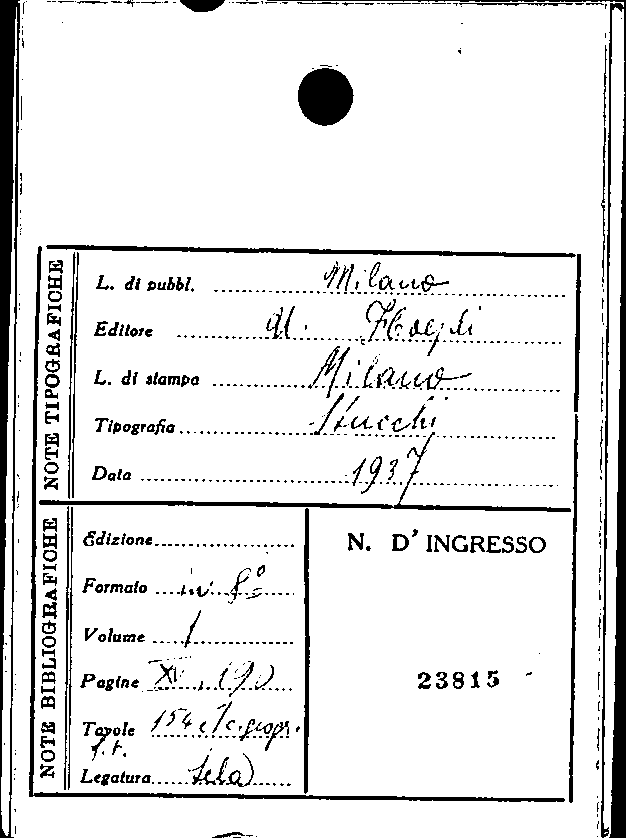 NOTE TIPOGRAFICHE
L. di pubbl. Milano
Editore U. Hoepli
L. di stampa Milano
Tipografia Stucchi
Data 1937
NOTE BIBLIOGRAFICHE
Edizione
Formato in 8º
Volume 1
Pagine XV, 190
Tavole 154 e 1 c. geogr.
f.t.
Legatura tela
N. D'INGRESSO
23815